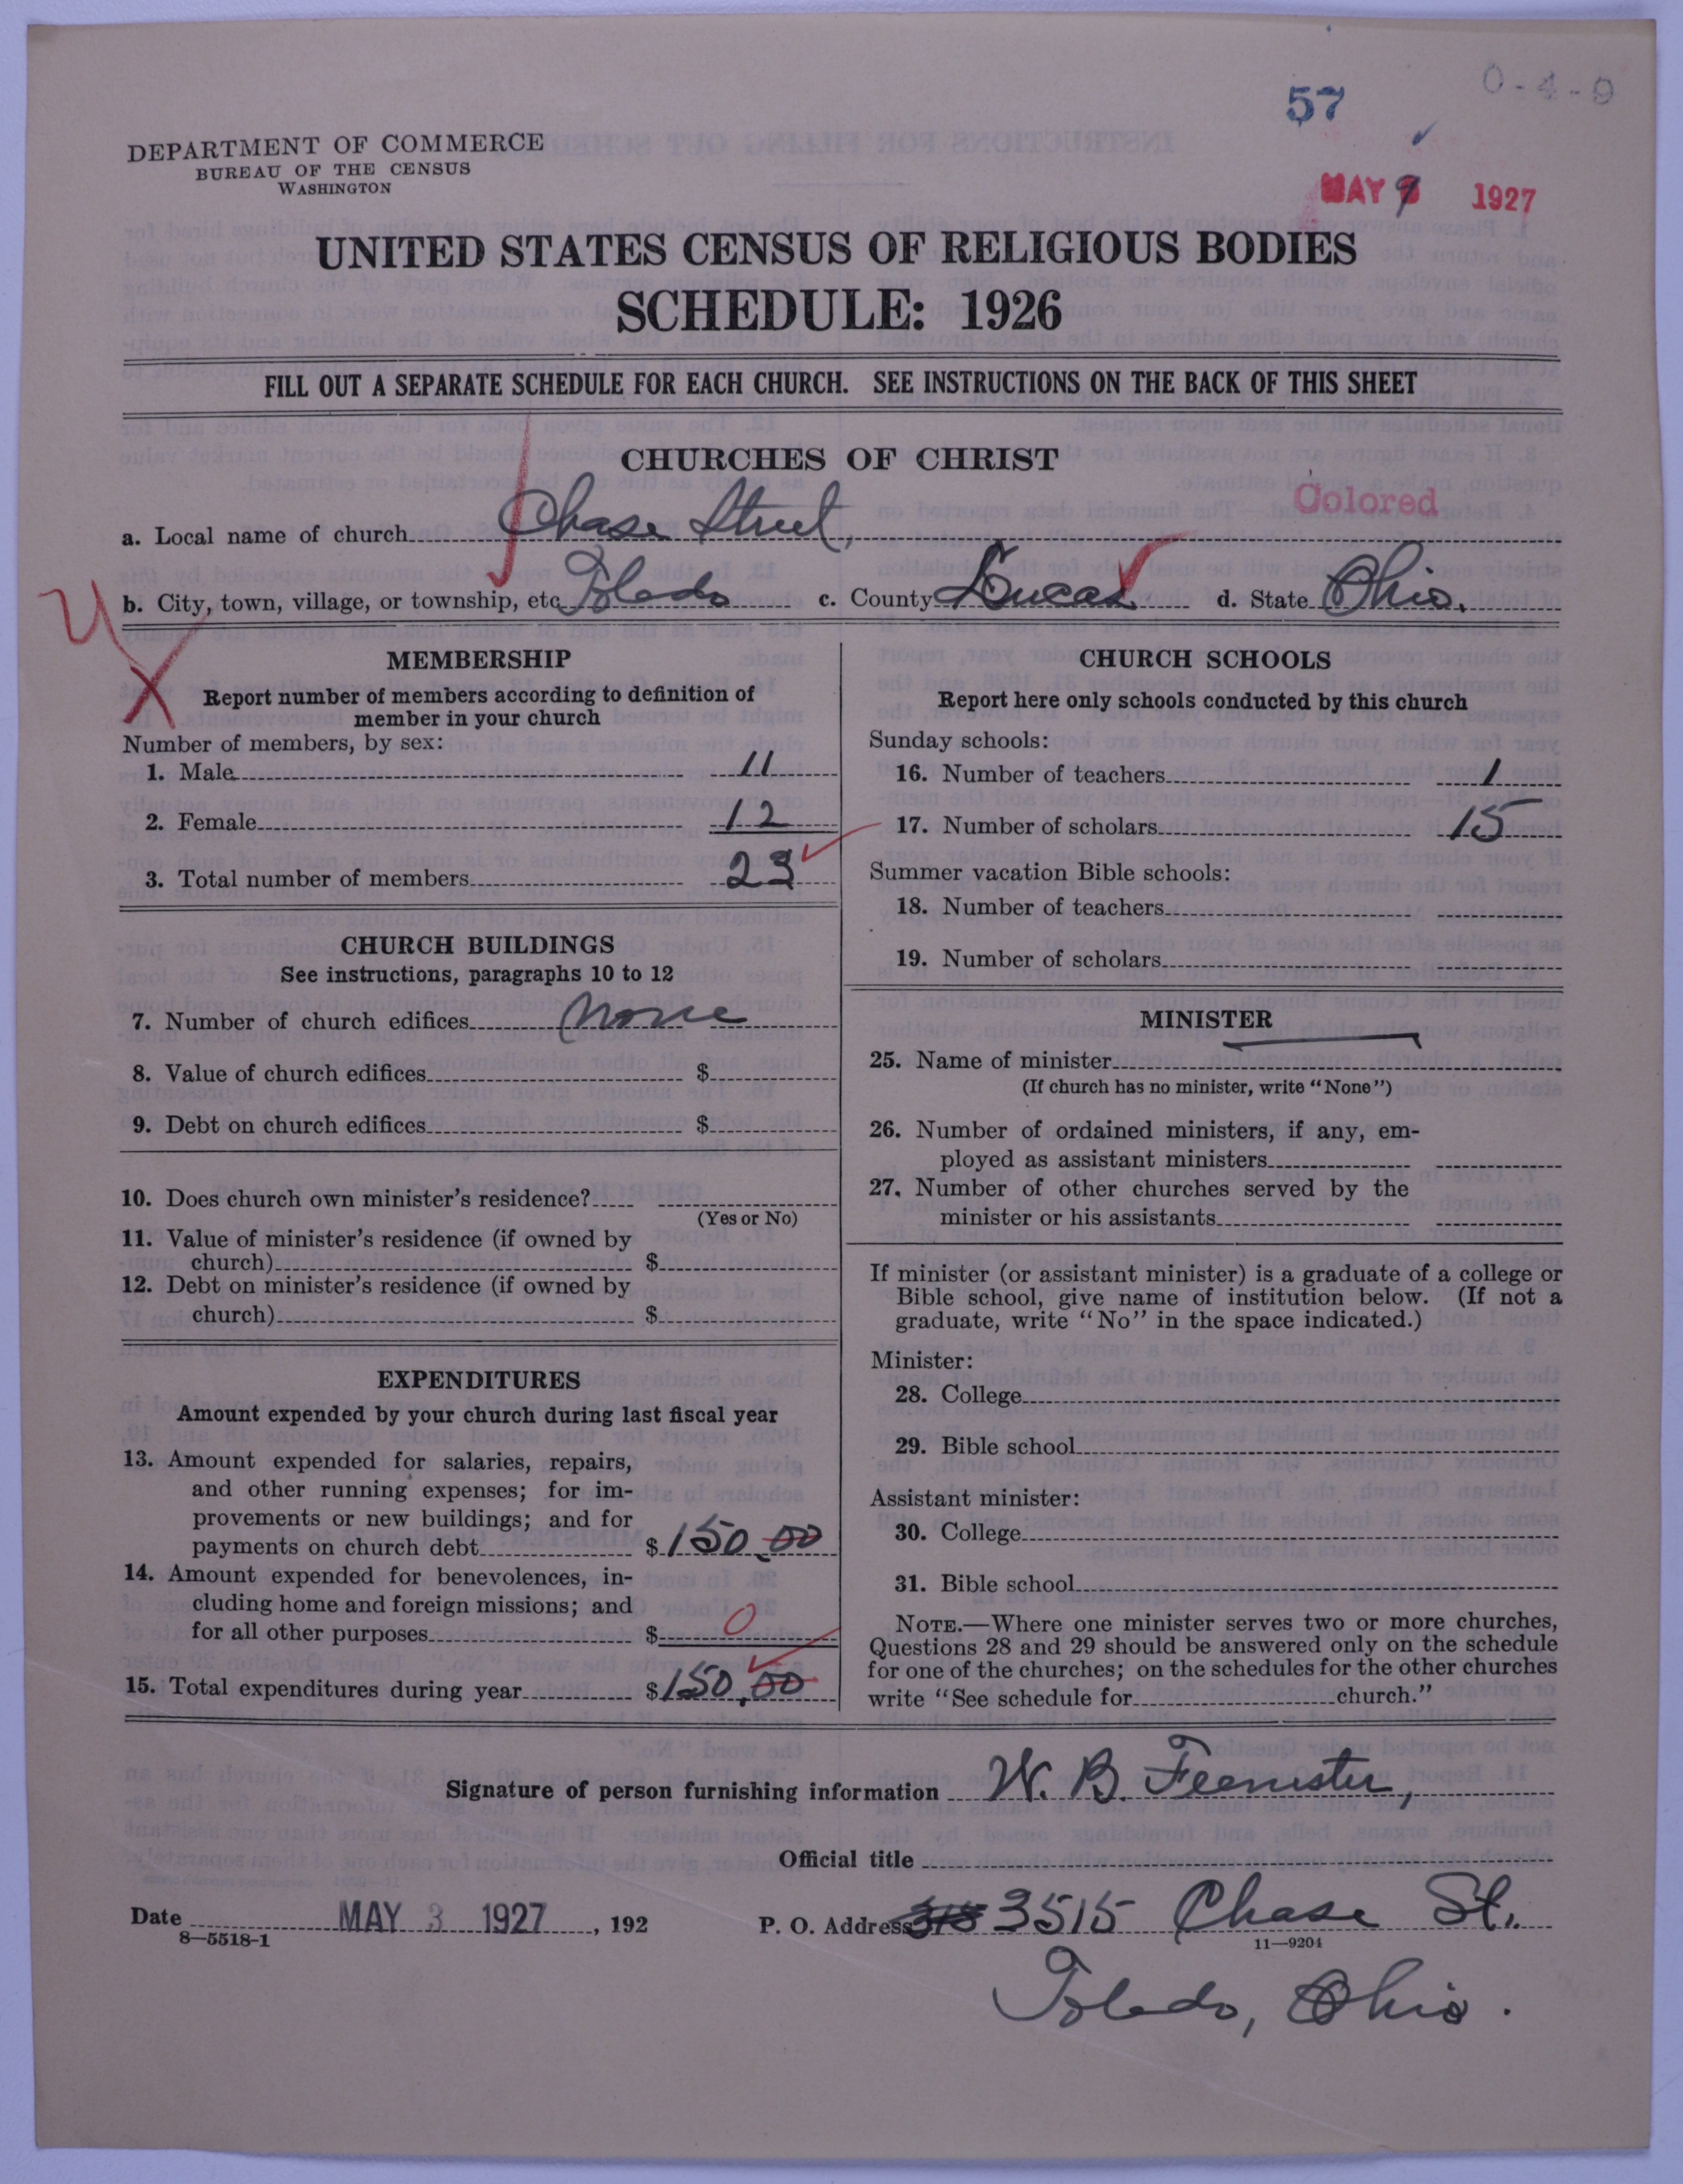 57
0-4-9
DEPARTMENT OF COMMERCE
BUREAU OF THE CENSUS
WASHINGTON
MAY 9 1927
UNITED STATES CENSUS OF RELIGIOUS BODIES
SCHEDULE: 1926
FILL OUT A SEPARATE SCHEDULE FOR EACH CHURCH. SEE INSTRUCTIONS ON THE BACK OF THIS SHEET
CHURCHES OF CHRIST
Colored
a. Local name of church Chase Street,
b. City, town, village, or township, etc Toledo c. County Lucas d. State Ohio.
MEMBERSHIP
Report number of members according to definition of
member in your church
Number of members, by sex:
1. Male 11
2. Female 12
3. Total number of members 23
CHURCH BUILDINGS
See instructions, paragraphs 10 to 12
7. Number of church edifices None
8. Value of church edifices $
9. Debt on church edifices $
10. Does church own minister's residence?
(Yes or No)
11. Value of minister's residence (if owned by
church) $
12. Debt on minister's residence (if owned by
church) $
EXPENDITURES
Amount expended by your church during last fiscal year
13. Amount expended for salaries, repairs,
and other running expenses; for im-
provements or new buildings; and for
payments on church debt $150.00
14. Amount expended for benevolences, in-
cluding home and foreign missions; and
for all other purposes $ 0
15. Total expenditures during year $150.00
CHURCH SCHOOLS
Report here only schools conducted by this church
Sunday schools:
16. Number of teachers 1
17. Number of scholars 15
Summer vacation Bible schools:
18. Number of teachers
19. Number of scholars
MINISTER
25. Name of minister
(If church has no minister, write "None")
26. Number of ordained ministers, if any, em-
ployed as assistant ministers
27. Number of other churches served by the
minister or his assistants
If minister (or assistant minister) is a graduate of a college or
Bible school, give name of institution below. (If not a
graduate, write "No" in the space indicated.)
Minister:
28. College
29. Bible school
Assistant minister:
30. College
31. Bible school
NOTE.—Where one minister serves two or more churches,
Questions 28 and 29 should be answered only on the schedule
for one of the churches; on the schedules for the other churches
write "See schedule for church."
Signature of person furnishing information W. B. Feemster,
Official title
Date MAY 3 1927, 192 P. O. Address 3515 Chase St.
8—5518-1 11—9204
Toledo, Ohio.